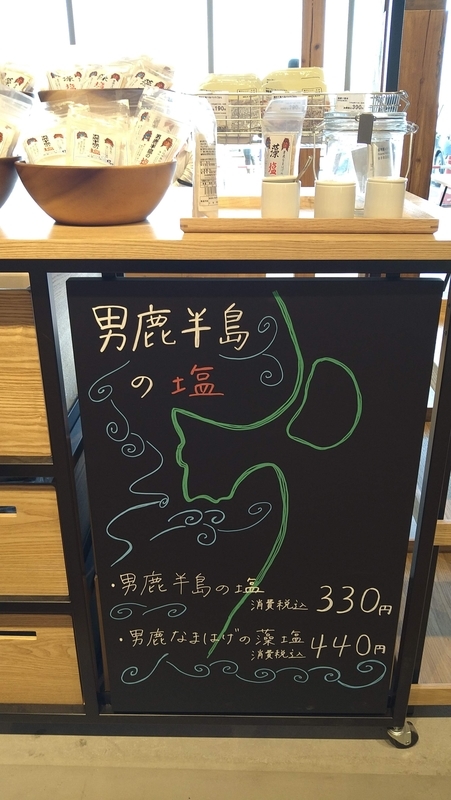 藻塩
男鹿半島
の塩
・男鹿半島の塩
消費税込 330円
・男鹿なまはげの藻塩
消費税込 440円